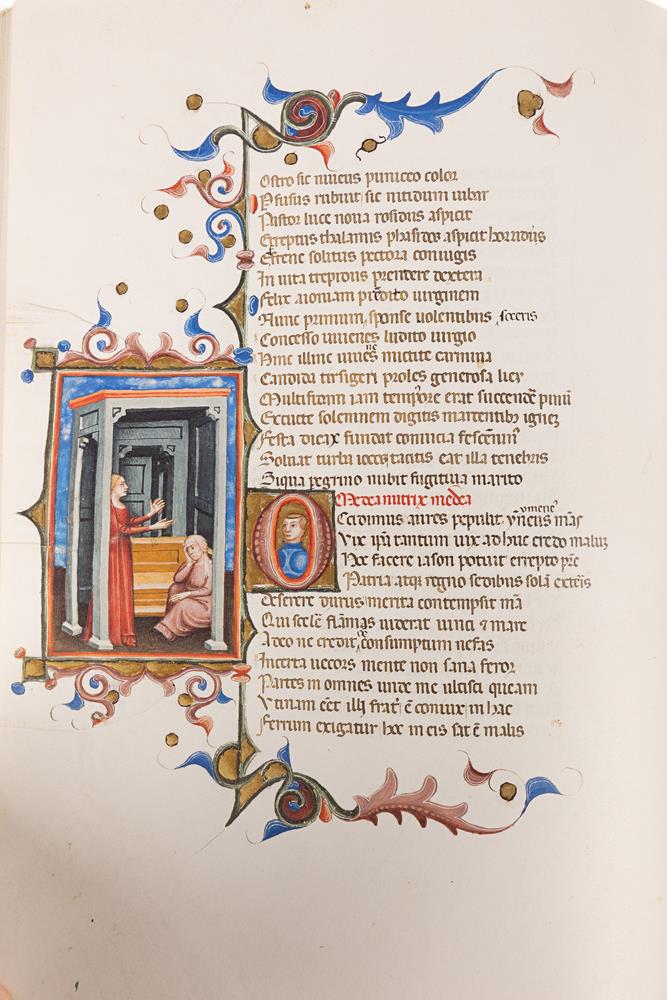 Ostro sic niueus puniceo color
Pfusus rubuit sic nitidum iubar
Pastor luce noua rosidus aspicit
Ereptus thalamis phasidos aspicit horridiis
Effrene solitus pectora coniugis
In uita trepidus prendere dextera
Felix aioniam predito uirginem
Nunc primum sponse uolentibus soceris
Concesso iuuenes ludito iurgio
Hinc illinc iuuenes mictite carmina
Candida tirsigeri proles generosa liey
Multifidam iam tempore erat succende pinu
Excute solemnem digitis marcentibus ignez
Festa dicax fundat conuicia fescenin
Soluat turba iocos tacitis eat illa tenebris
Siqua pegrino nubit fugitiua marito
Medea nutrix medea
Occidimus aures pepulit ymeneus mas
Vix ipa tantum uix adhuc credo maluz
Hoc facere iason potuit errepto pre
Patria atqz regno sedibus sola exteis
Deserere durus merita contempsit ma
Qui scele flamas uiderat uinci z mare
Adeo ne credit consumptum nefas
Incerta uecors mente non sana feror
Partes in omnes unde me ulcisci queam
Vtinam eet illi frat e coniux in hac
Ferrum exigatur hoc in eis sat e malis